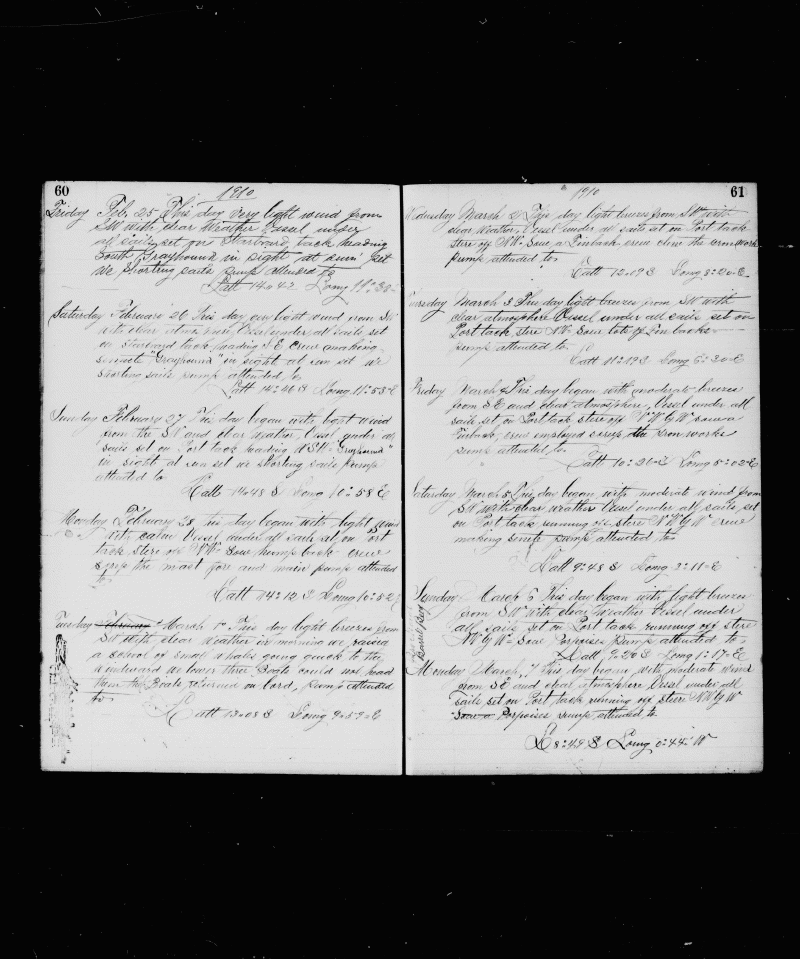 60
1910
Friday Feb, 25 This day very light wind from
SW with clear Weather Vessel under
all sails set on Starboard tack heading
South Grayhound in sight at sun set
We shorting sails pump attended to
Latt 14:0 Long 11:
Saturday February 26 This day light wind from SW
with clear Vessel under all sails set
on Starbord tack heading S E Crew making
"Grayhound" in sight at sun set we
shorting sails pump attended to
Latt 14:46 S Long 11:58 E
Sunday February 27 This day began with light wind
from the SW and clear Weather, Vessel under all
sails set on Port tack heading WSW "Grayhound"
in sight at sun set we shorting sails Pump
attended to
Latt 14:48 S Long 10:58 E
Monday February 28 This day began with light wind
with calm Vessel under all sails set on Port
tack stere off NW Saw hump back crew
the mast fore and main pump attended
to
Latt 14:12 S Long 10:52
Tuesday February March 1 This day light breezes from
SW With clear Weather in morning we raised
a school of small whales going quick to the
windward we lower three Boats could not head
them the Boats returned on bord, pump attended
to
Latt 13:08 S Long 9:59 E
61
1910
Wednesday March 2 This day light breezes from SW with
clear Weather, Vessel under all sails set on Port tack
stere off NW Saw a Finback crew clene the iron work
pump attended to
Latt 12:09 S Long 8:20 E
March 3 This day light breezes from SW with
clear atmosphere Vessel under all sails set on
Port tack, stere NW Saw lots of Finbacks
pump attended to
Latt 11:19 S Long 6:30 E
Friday March 4 This day began with moderate breezes
from SE and clear atmosphere, Vessel under all
sails set on Port tack stere off NW by W saw a
Finback, crew employed scrap the iron works
pump attended to
Latt 10:20 S Long 5:02 E
Saturday March 5, This day began with moderate wind from
SW with clear weather Vessel under all sails, set
on Port tack running off stere NW by W Crew
making pump attended to
Latt 9:48 S Long 3:11 E
Sunday March 6 This day began with light breezes
from SW with clear Weather Vessel under
all sails set on Port tack running off stere
NW by W Saw Porpoises Pump attended to
Latt 9:20 S Long 1:17 E
Monday March, 7 this day began with moderate wind
from SE and clear atmosphere Vessel under all
sails set on Port tack running off stere NW by W
Saw a Porpoises pump attended to
L 8:49 S Long 0:44 W